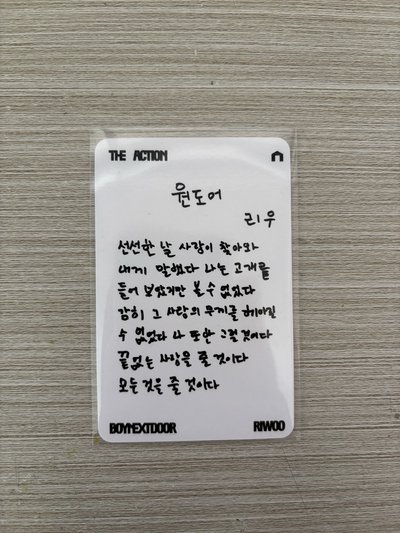 THE ACTION
원도어
리우
선선한 날 사랑이 찾아와
내게 말했다 나는 고개를
들어 보았지만 볼 수 없었다
감히 그 사랑의 무게를 헤아릴
수 없었다 나 또한 그럴 것이다
끝없는 사랑을 줄 것이다
모든 것을 줄 것이다
BOYNEXTDOOR
RIWOO